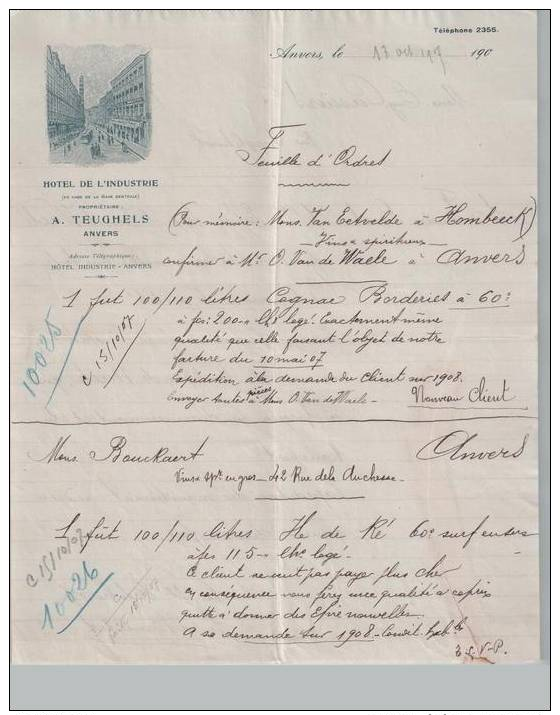 Téléphone 2355.
Anvers, le 13 oct 1907
HOTEL DE L'INDUSTRIE
(EN FACE DE LA GARE CENTRALE)
PROPRIÉTAIRE:
A. TEUGHELS
ANVERS
Adresse Télégraphique:
HÔTEL INDUSTRIE - ANVERS
Feuille d'Ordres
(Pour mémoire: Mons. Van Eetvelde à Hombeeck)
Vins & spiritueux
confirmer à Mr O. Van de Waele à Anvers
1 fût 100/110 litres Cognac Borderies à 60°
à frs: 200 -- logé. Exactement même
qualité que celle faisant l'objet de notre
facture du 10 mai 07
Expédition à la demande du Client sur 1908.
Envoyer toutes pièces à Mons O. Van de Waele -
Nouveau Client
10025
c 15/10/07
Mons. Bouckaert Anvers
Vins & spt en gros - 42 Rue de la Duchesse -
1 fût 100/110 litres Ile de Ré 60°
à frs 115 -- logé.
Ce client ne veut pas payer plus cher
en conséquence vous ferez une qualité à ce prix
quitte à donner des nouvelles.
A sa demande sur 1908 -
T.S.V.P.
c 15/10/07
10026